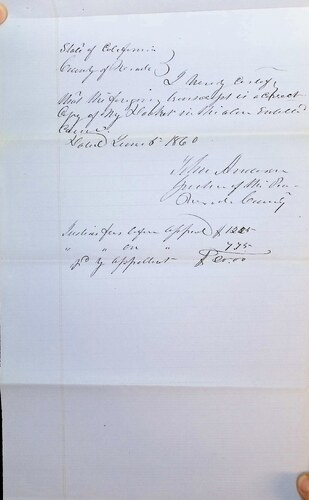 State of California
County of Nevada } I hereby certify
that the foregoing transcript is a correct
Copy of my Docket in the above Entitled
Cause
Dated June 5 1860
John Anderson
Justice of the Peace
Nevada County
Justice fees before appeal $12.25
" " on " 7.75
pd by appellant $20.00